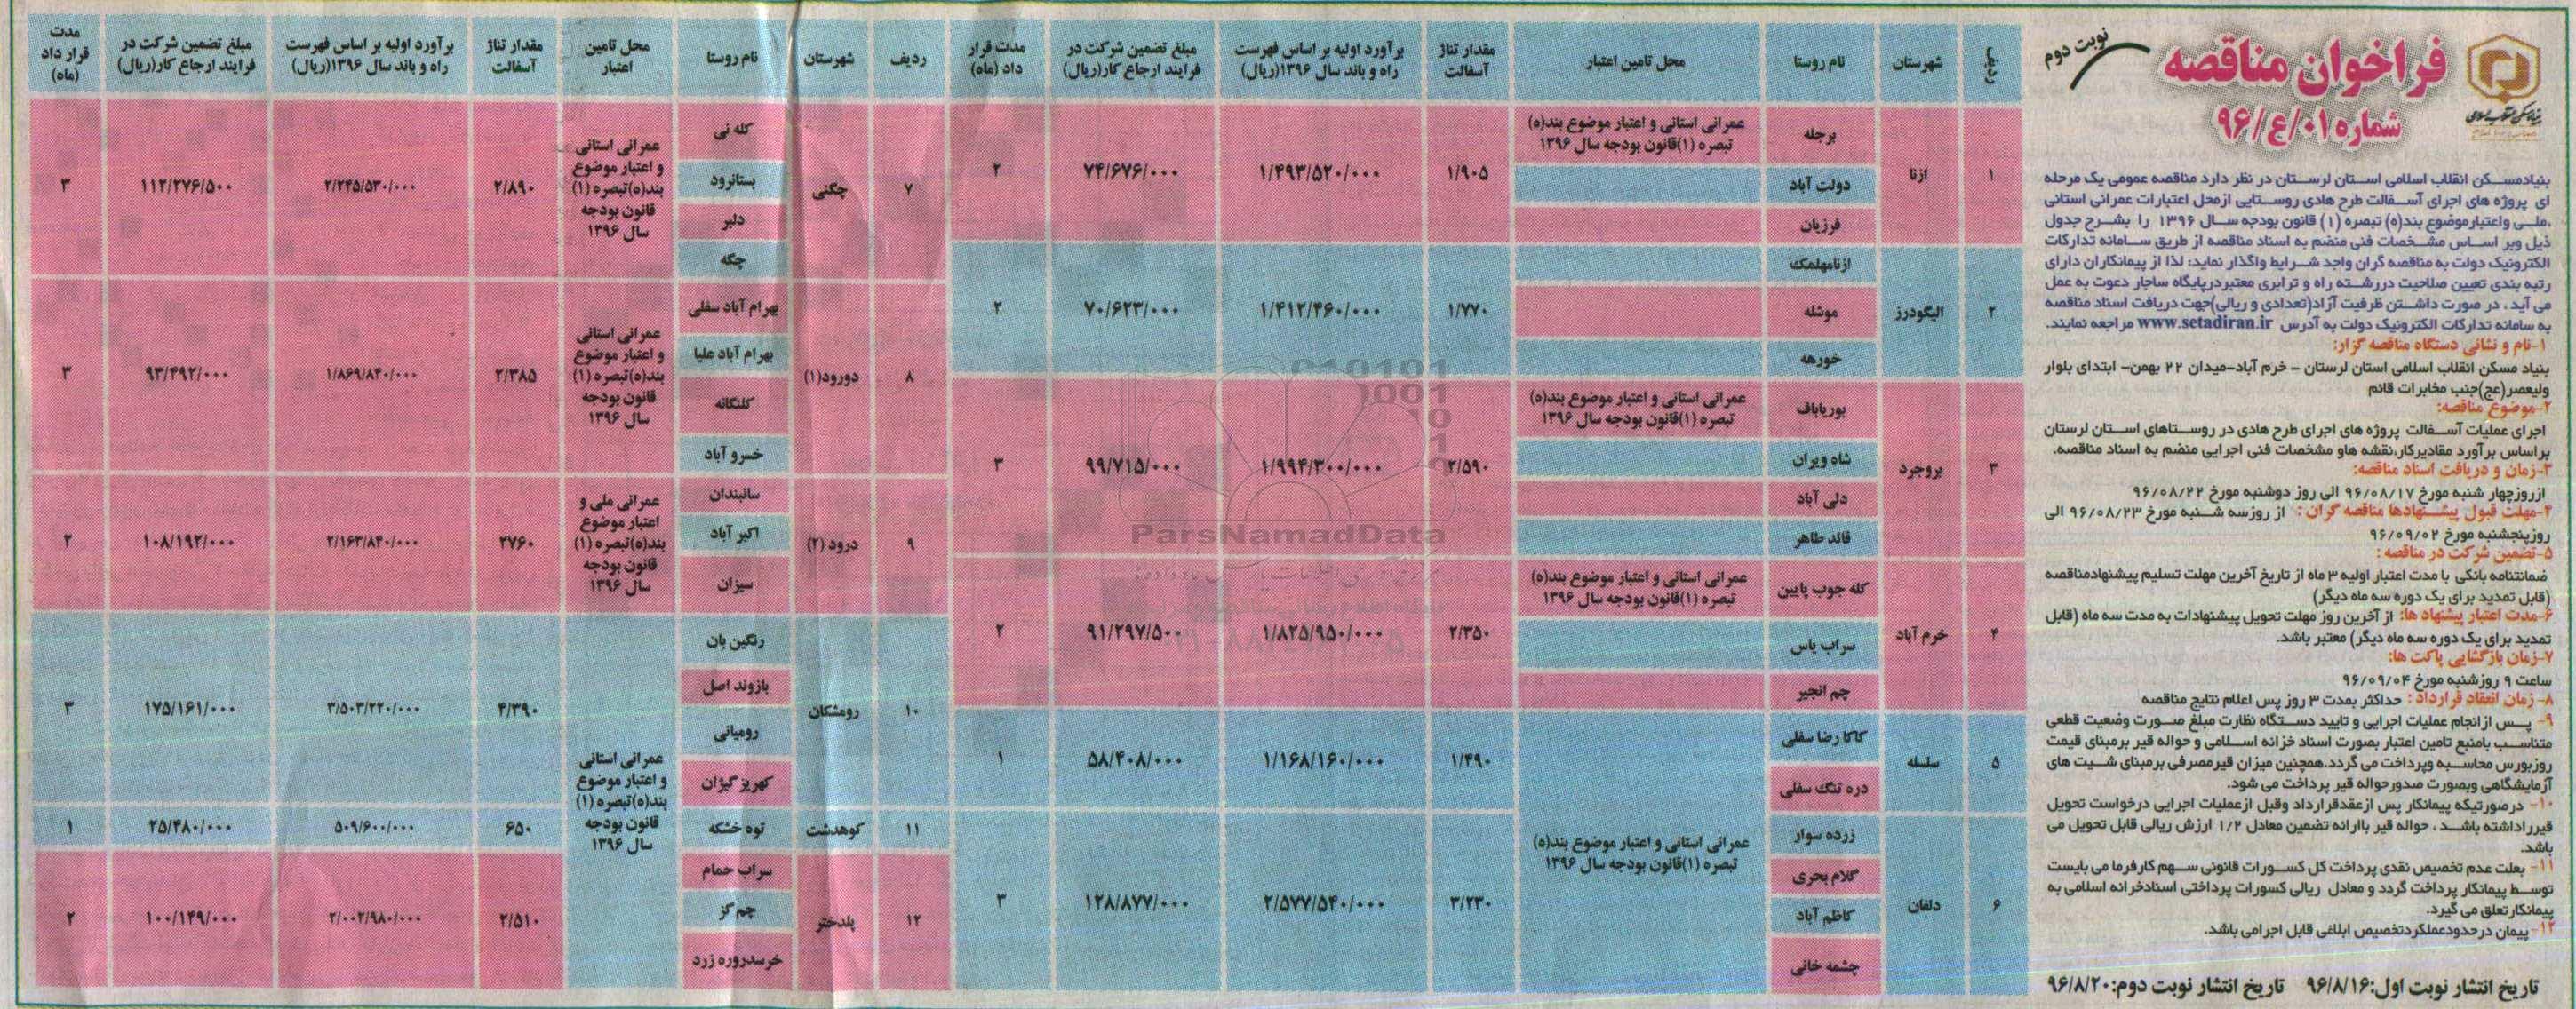 بنیاد مسکن انقلاب اسلامی
فراخوان مناقصه
شماره ۹۶/ع/۰۱
نوبت دوم
بنیادمسکن انقلاب اسلامی استان لرستان در نظر دارد مناقصه عمومی یک مرحله
ای پروژه های اجرای آسفالت طرح هادی روستایی ازمحل اعتبارات عمرانی استانی
،ملی واعتبارموضوع بند(ه) تبصره (۱) قانون بودجه سال ۱۳۹۶ را بشرح جدول
ذیل وبر اساس مشخصات فنی منضم به اسناد مناقصه از طریق سامانه تدارکات
الکترونیک دولت به مناقصه گران واجد شرایط واگذار نماید؛ لذا از پیمانکاران دارای
رتبه بندی تعیین صلاحیت دررشته راه و ترابری معتبردرپایگاه ساجار دعوت به عمل
می آید ، در صورت داشتن ظرفیت آزاد(تعدادی و ریالی)جهت دریافت اسناد مناقصه
به سامانه تدارکات الکترونیک دولت به آدرس www.setadiran.ir مراجعه نمایند.
۱-نام و نشانی دستگاه مناقصه گزار:
بنیاد مسکن انقلاب اسلامی استان لرستان - خرم آباد-میدان ۲۲ بهمن- ابتدای بلوار
ولیعصر(عج)جنب مخابرات قائم
۲-موضوع مناقصه:
اجرای عملیات آسفالت پروژه های اجرای طرح هادی در روستاهای استان لرستان
براساس برآورد مقادیرکار،نقشه هاو مشخصات فنی اجرایی منضم به اسناد مناقصه.
۳-زمان و دریافت اسناد مناقصه:
ازروزچهار شنبه مورخ ۹۶/۰۸/۱۷ الی روز دوشنبه مورخ ۹۶/۰۸/۲۲
۴-مهلت قبول پیشنهادها مناقصه گران : از روزسه شنبه مورخ ۹۶/۰۸/۲۳ الی
روزپنجشنبه مورخ ۹۶/۰۹/۰۲
۵-تضمین شرکت در مناقصه :
ضمانتنامه بانکی با مدت اعتبار اولیه ۳ ماه از تاریخ آخرین مهلت تسلیم پیشنهادمناقصه
(قابل تمدید برای یک دوره سه ماه دیگر)
۶-مدت اعتبار پیشنهاد ها: از آخرین روز مهلت تحویل پیشنهادات به مدت سه ماه (قابل
تمدید برای یک دوره سه ماه دیگر) معتبر باشد.
۷-زمان بازگشایی پاکت ها:
ساعت ۹ روزشنبه مورخ ۹۶/۰۹/۰۴
۸- زمان انعقاد قرارداد : حداکثر بمدت ۳ روز پس اعلام نتایج مناقصه
۹- پس ازانجام عملیات اجرایی و تایید دستگاه نظارت مبلغ صورت وضعیت قطعی
متناسب بامنبع تامین اعتبار بصورت اسناد خزانه اسلامی و حواله قیر برمبنای قیمت
روزبورس محاسبه وپرداخت می گردد.همچنین میزان قیرمصرفی برمبنای شیت های
آزمایشگاهی وبصورت صدورحواله قیر پرداخت می شود.
۱۰- درصورتیکه پیمانکار پس ازعقدقرارداد وقبل ازعملیات اجرایی درخواست تحویل
قیرراداشته باشد ، حواله قیر باارائه تضمین معادل ۱/۲ ارزش ریالی قابل تحویل می
باشد.
۱۱- بعلت عدم تخصیص نقدی پرداخت کل کسورات قانونی سهم کارفرما می بایست
توسط پیمانکار پرداخت گردد و معادل ریالی کسورات پرداختی اسنادخزانه اسلامی به
پیمانکارتعلق می گیرد.
۱۲-پیمان درحدودعملکردتخصیص ابلاغی قابل اجرامی باشد.
تاریخ انتشار نوبت اول:۹۶/۸/۱۶ تاریخ انتشار نوبت دوم:۹۶/۸/۲۰
ردیف شهرستان نام روستا محل تامین اعتبار مقدار تناژ آسفالت برآورد اولیه بر اساس فهرست راه و باند سال ۱۳۹۶(ریال) مبلغ تضمین شرکت در فرایند ارجاع کار(ریال) مدت قرار داد (ماه)
۱ ازنا برجله عمرانی استانی و اعتبار موضوع بند(ه) تبصره (۱)قانون بودجه سال ۱۳۹۶ ۱/۹۰۵ ۱/۴۹۳/۵۲۰/۰۰۰ ۷۴/۶۷۶/۰۰۰ ۲
دولت آباد
فرزیان
۲ الیگودرز ازنامهلمک ۱/۷۷۰ ۱/۴۱۲/۴۶۰/۰۰۰ ۷۰/۶۲۳/۰۰۰ ۲
موشله
خورهه
۳ بروجرد بوریاباف عمرانی استانی و اعتبار موضوع بند(ه) تبصره (۱)قانون بودجه سال ۱۳۹۶ ۲/۵۹۰ ۱/۹۹۴/۳۰۰/۰۰۰ ۹۹/۷۱۵/۰۰۰ ۳
شاه ویران
دلی آباد
قائد طاهر
۴ خرم آباد کله جوب پایین عمرانی استانی و اعتبار موضوع بند(ه) تبصره (۱)قانون بودجه سال ۱۳۹۶ ۲/۳۵۰ ۱/۸۲۵/۹۵۰/۰۰۰ ۹۱/۲۹۷/۵۰۰ ۲
سراب یاس
چم انجیر
۵ سلسله کاکا رضا سفلی ۱/۴۹۰ ۱/۱۶۸/۱۶۰/۰۰۰ ۵۸/۴۰۸/۰۰۰ ۱
دره تنگ سفلی
۶ دلفان زرده سوار عمرانی استانی و اعتبار موضوع بند(ه) تبصره (۱)قانون بودجه سال ۱۳۹۶ ۳/۲۳۰ ۲/۵۷۷/۵۴۰/۰۰۰ ۱۲۸/۸۷۷/۰۰۰ ۳
گلام بحری
کاظم آباد
چشمه خانی
ردیف شهرستان نام روستا محل تامین اعتبار مقدار تناژ آسفالت برآورد اولیه بر اساس فهرست راه و باند سال ۱۳۹۶(ریال) مبلغ تضمین شرکت در فرایند ارجاع کار(ریال) مدت قرار داد (ماه)
۷ چگنی کله نی عمرانی استانی و اعتبار موضوع بند(ه)تبصره (۱) قانون بودجه سال ۱۳۹۶ ۲/۸۹۰ ۲/۲۴۵/۵۳۰/۰۰۰ ۱۱۲/۲۷۶/۵۰۰ ۳
بستانرود
دلبر
چگه
۸ دورود(۱) بهرام آباد سفلی عمرانی استانی و اعتبار موضوع بند(ه)تبصره (۱) قانون بودجه سال ۱۳۹۶ ۲/۳۸۵ ۱/۸۶۹/۸۴۰/۰۰۰ ۹۳/۴۹۲/۰۰۰ ۳
بهرام آباد علیا
کلنگانه
خسرو آباد
۹ درود (۲) سانبندان عمرانی ملی و اعتبار موضوع بند(ه)تبصره (۱) قانون بودجه سال ۱۳۹۶ ۲۷۶۰ ۲/۱۶۳/۸۴۰/۰۰۰ ۱۰۸/۱۹۲/۰۰۰ ۲
اکبر آباد
سیزان
۱۰ رومشکان رنگین بان عمرانی استانی و اعتبار موضوع بند(ه)تبصره (۱) قانون بودجه سال ۱۳۹۶ ۴/۳۹۰ ۳/۵۰۳/۲۲۰/۰۰۰ ۱۷۵/۱۶۱/۰۰۰ ۳
بازوند اصل
رومیانی
کهریز گیژان
۱۱ کوهدشت توه خشکه ۶۵۰ ۵۰۹/۶۰۰/۰۰۰ ۲۵/۴۸۰/۰۰۰ ۱
۱۲ پلدختر سراب حمام ۲/۵۱۰ ۲/۰۰۲/۹۸۰/۰۰۰ ۱۰۰/۱۴۹/۰۰۰ ۲
چم گز
خرسدروره زرد
ParsNamadData